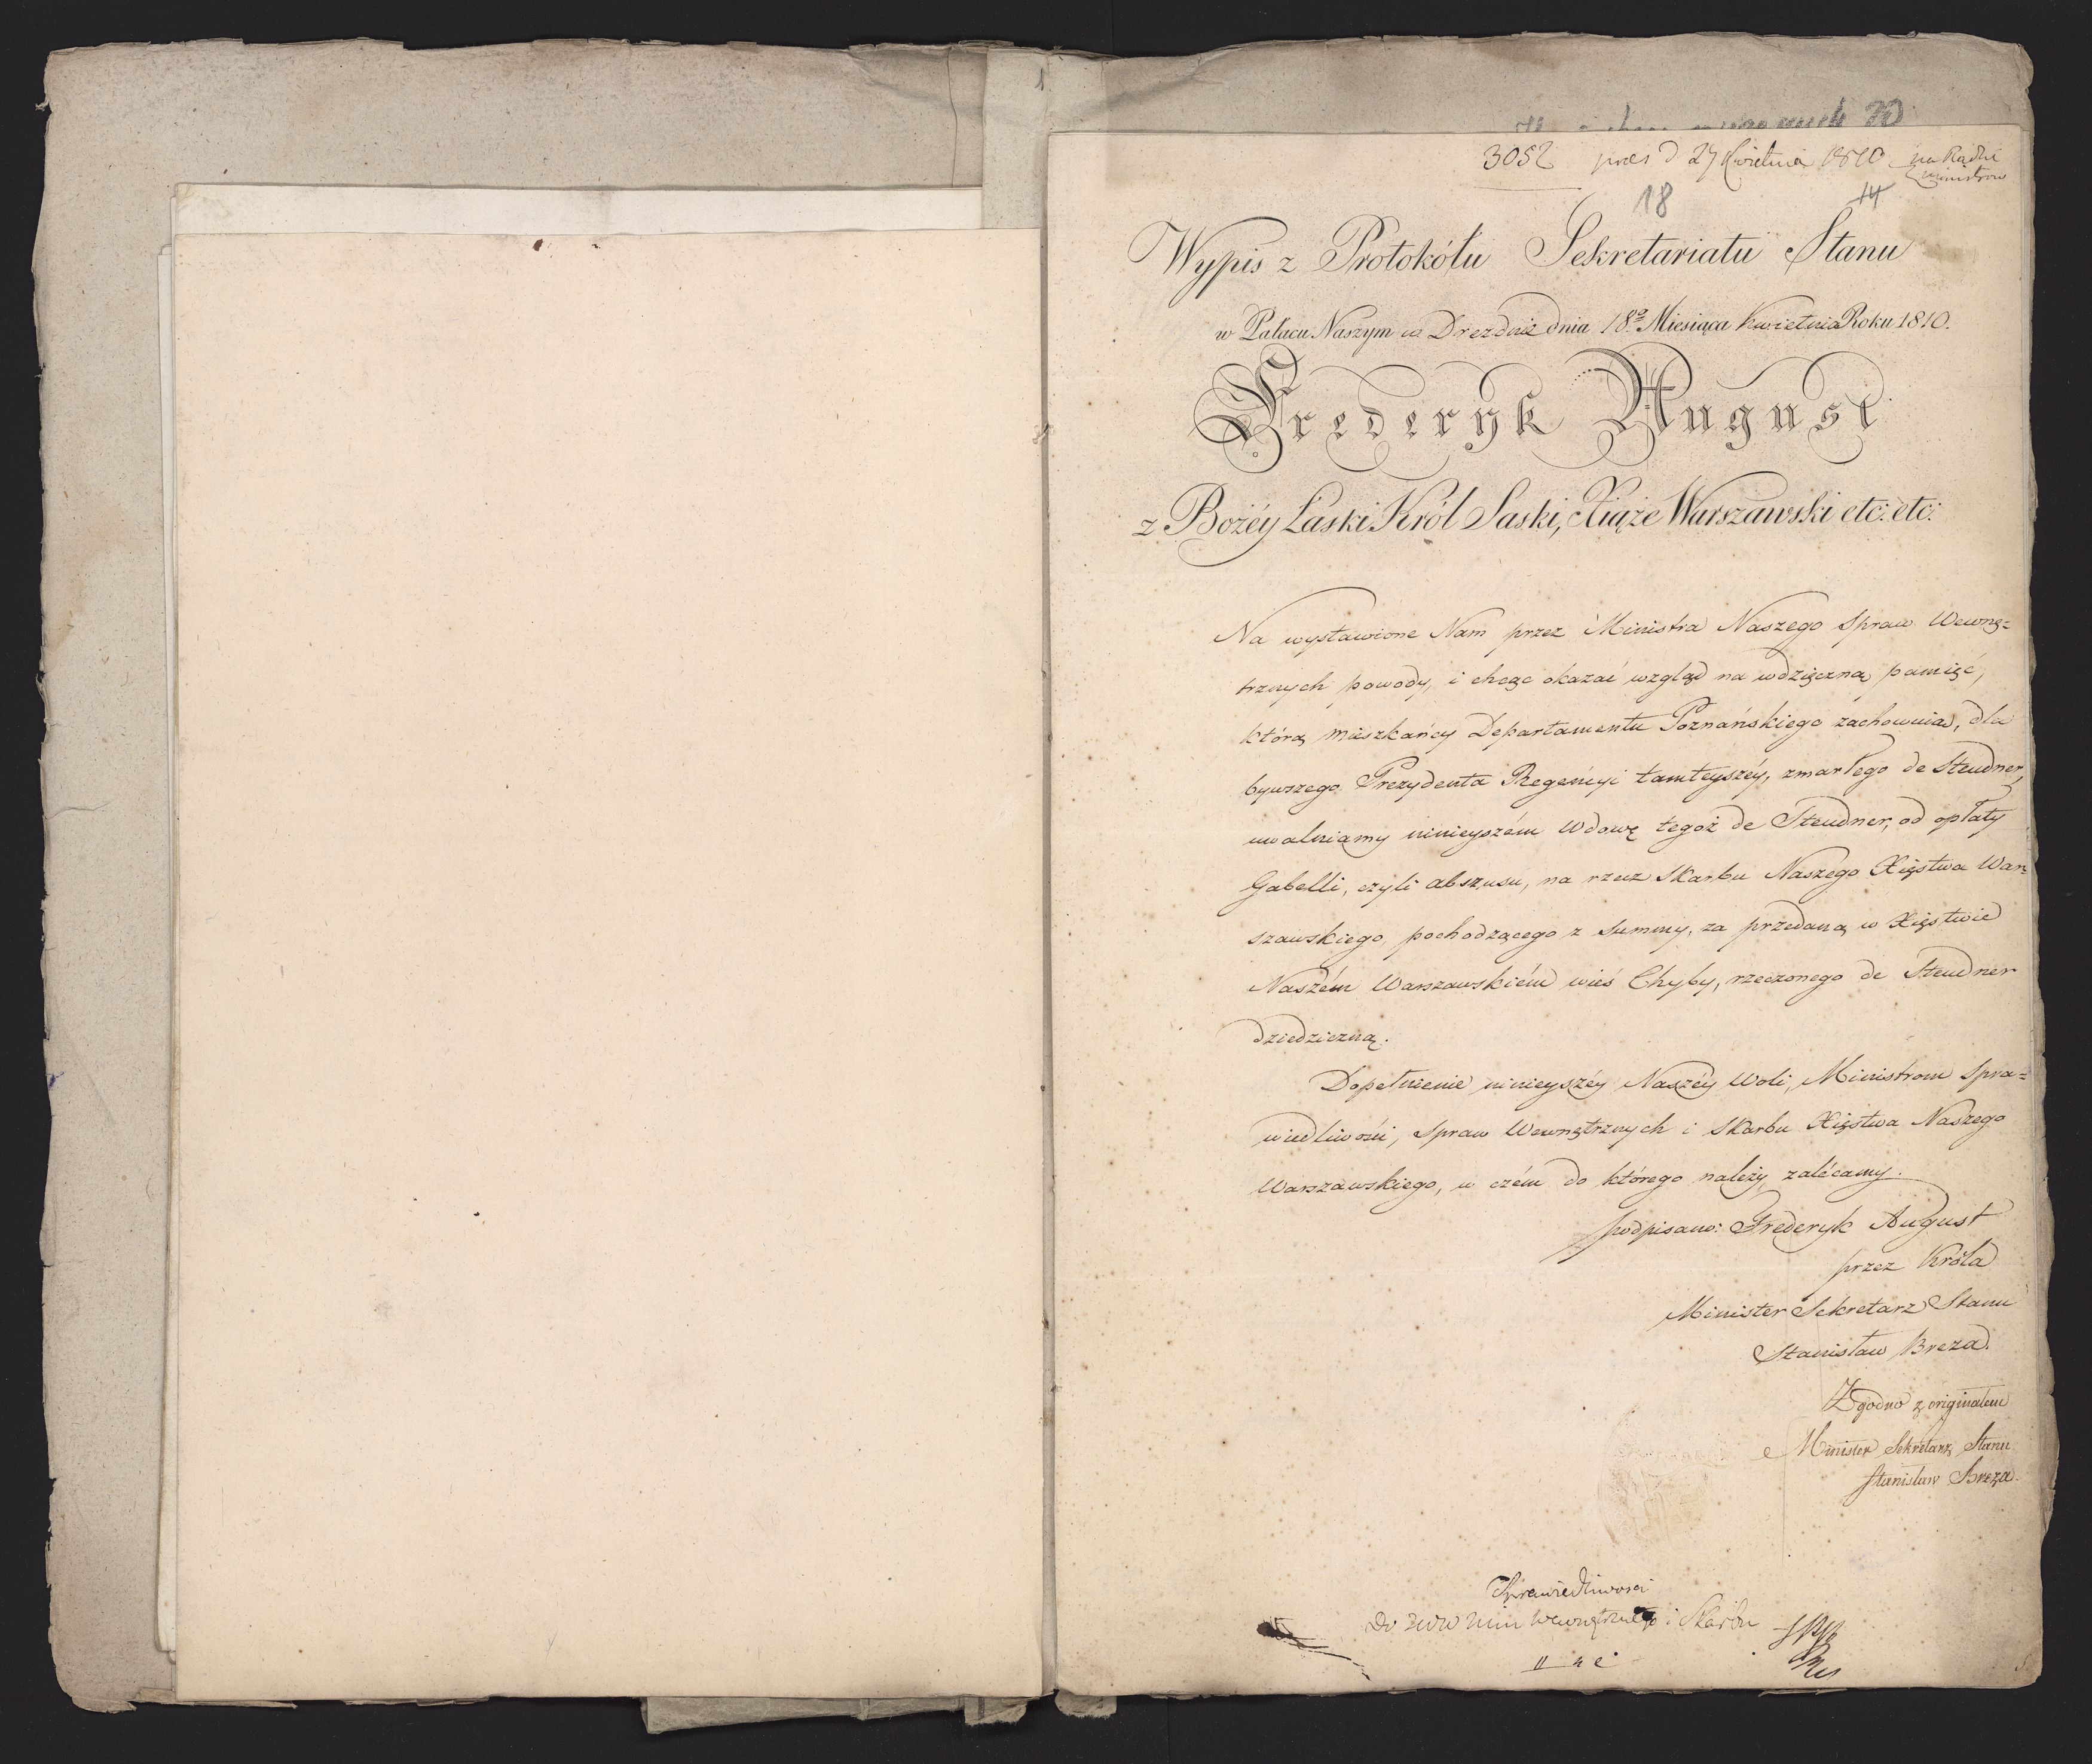 1
3052 praes d 27 Kwietnia 1810 na Radzie
Ministrow
18 14
Wypis z Protokółu Sekretariatu Stanu
w Pałacu Naszym w Dreznie dnia 18º Miesiąca Kwietnia Roku 1810.
Frederyk August
z Bożéy Łaski Król Saski, Xiąże Warszawski etc: etc:
Na wystawione Nam przez Ministra Naszego Spraw Wewnę=
trznych powody, i chcąc okazać wzgląd na wdzięczną pamięć,
którą mieszkańcy Departamentu Poznańskiego zachowuią, dla
bywszego Prezydenta Regencyi tamteyszéy, zmarłego de Steudner,
uwalniamy ninieyszém Wdowę tegoż de Steudner, od opłaty
Gabelli, czyli abszusu, na rzecz Skarbu Naszego Xięstwa War=
szawskiego, pochodzącego z Summy, za przedaną w Xięstwie
Naszém Warszawskiém wieś Chyby, rzeczonego de Steudner
dziedziczną.
Dopełnienie ninieyszéy Naszéy Woli, Ministrom Spra=
wiedliwości, Spraw Wewnętrznych i Skarbu Xięstwa Naszego
Warszawskiego, w czém do którego należy, zalécamy.
podpisano: Frederyk August
przez Króla
Minister Sekretarz Stanu
Stanisław Breza.
Zgodno z originałem
Minister Sekretarz Stanu
Stanisław Breza.
Sprawiedliwosci
Do JWW Min Wewnętrznego i Skarbu